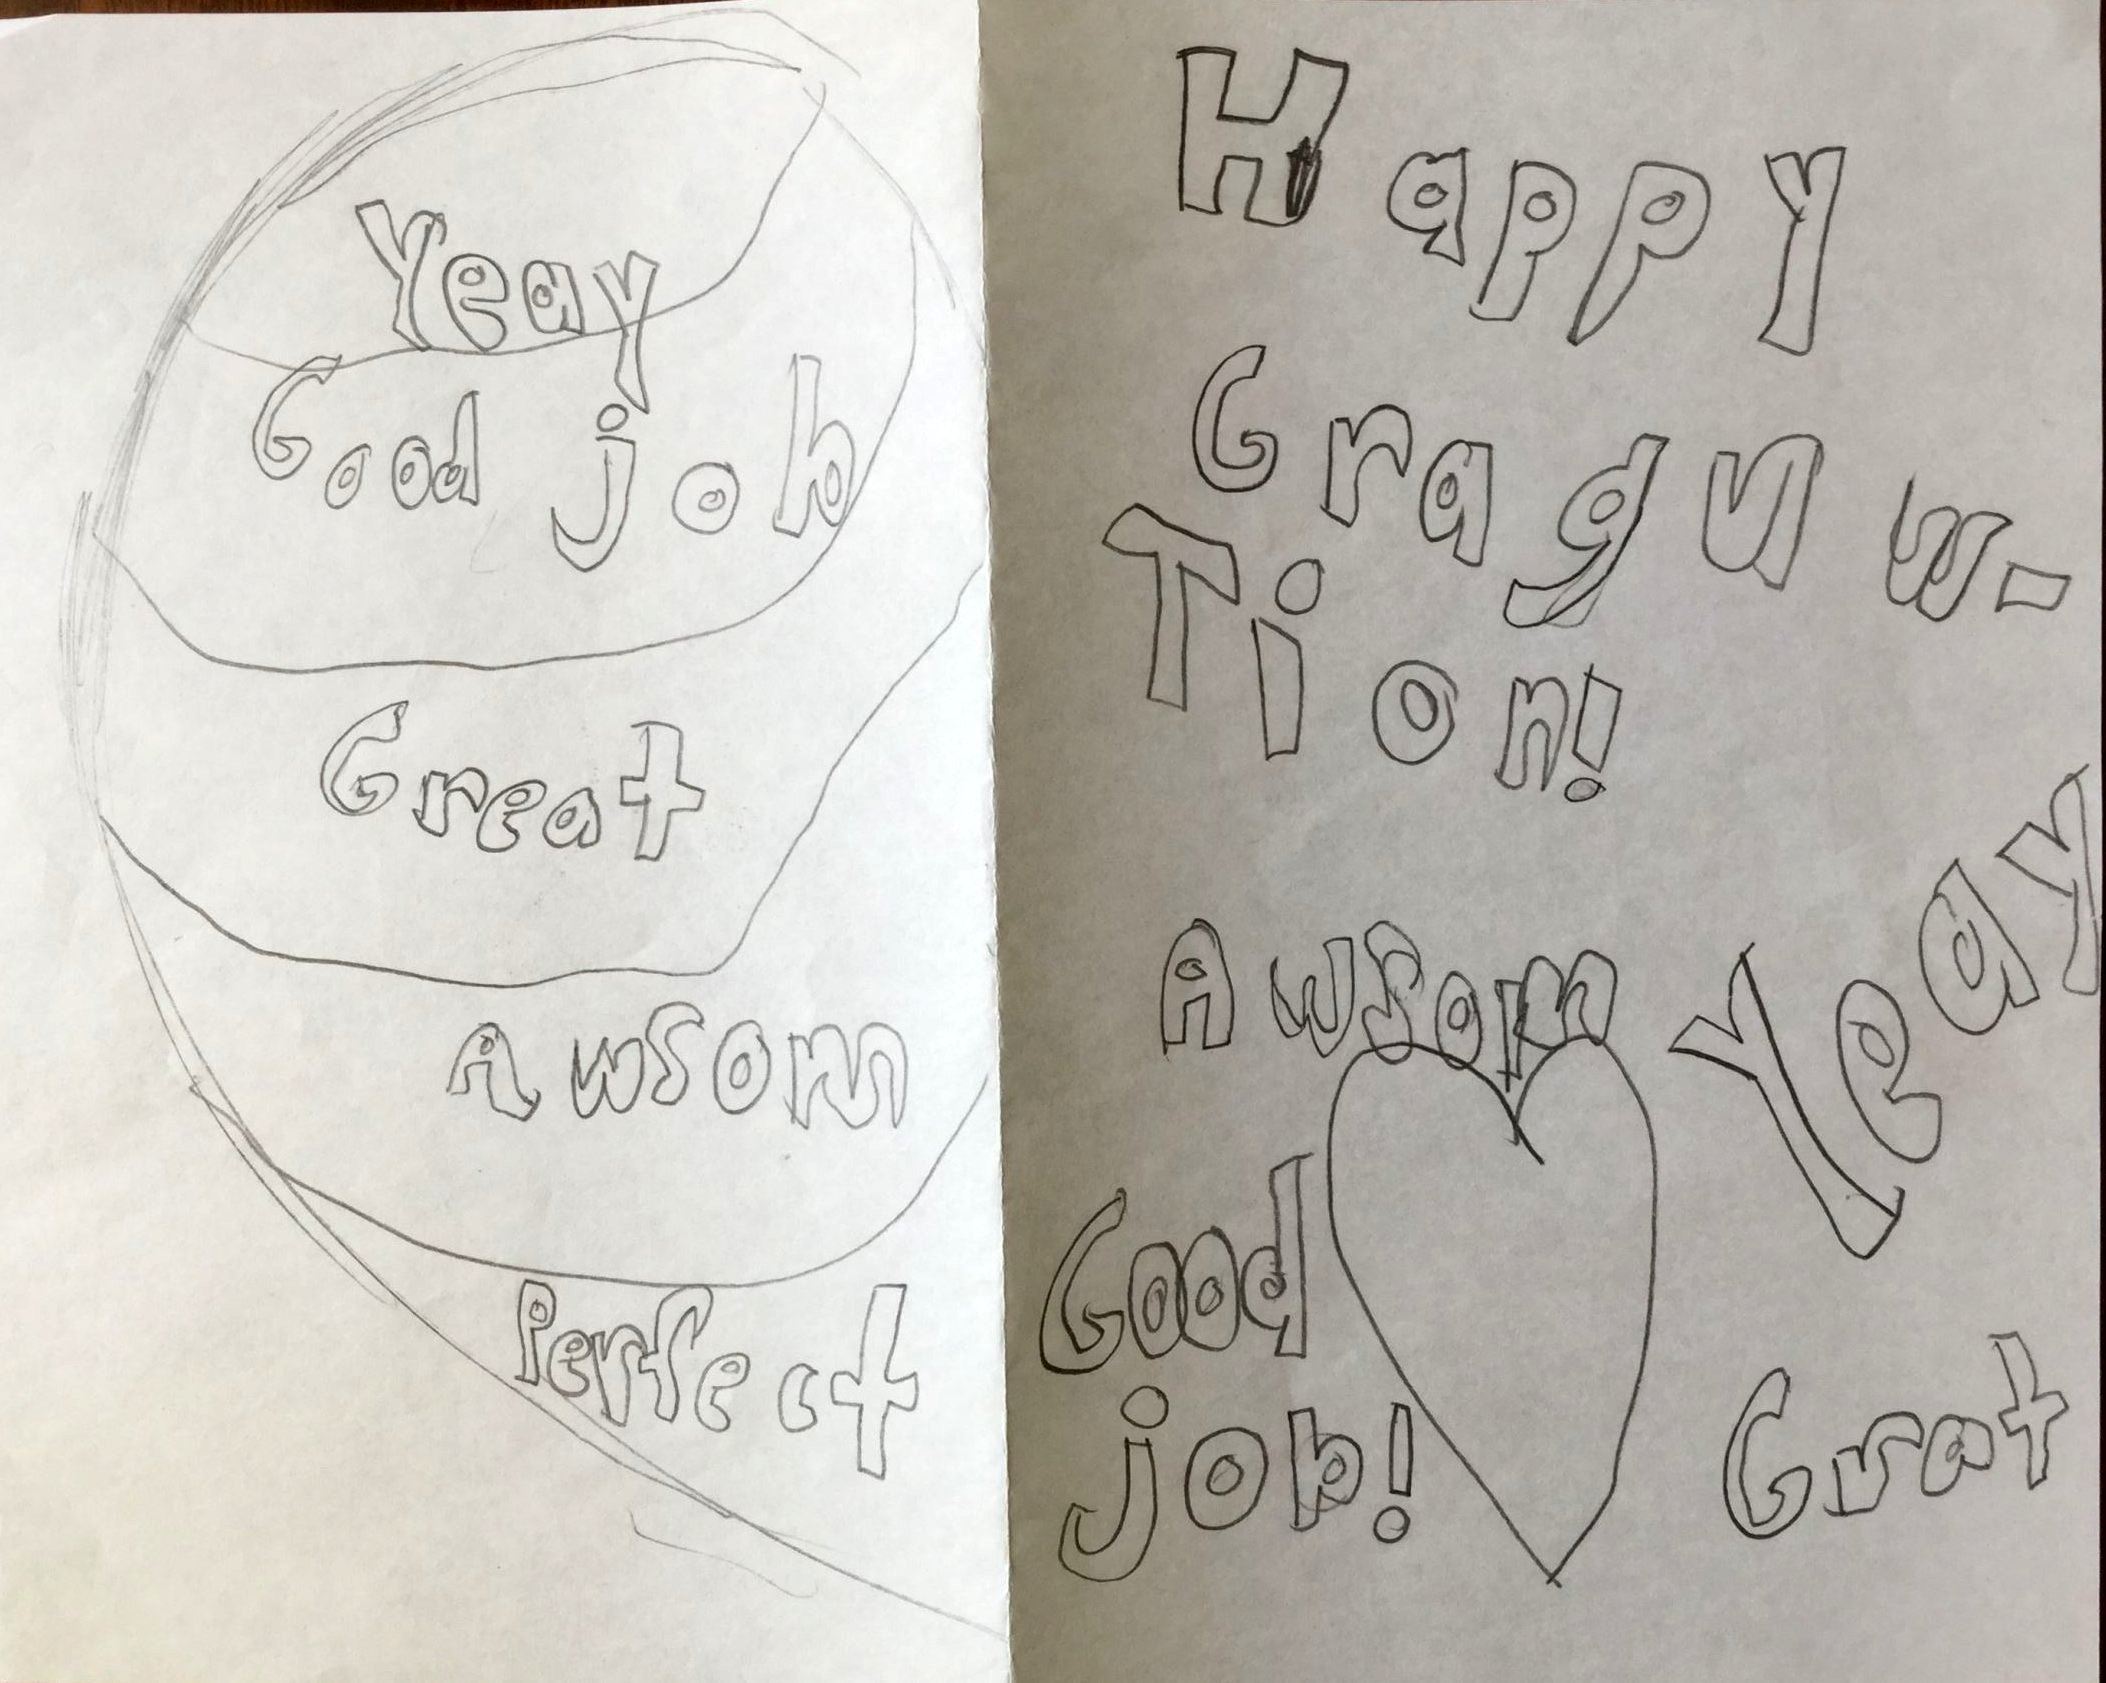 Yeay
Good job
Great
Awsom
Perfect
Happy
Graguw-
Tion!
Awsom
Yeay
Good
job!
Grat